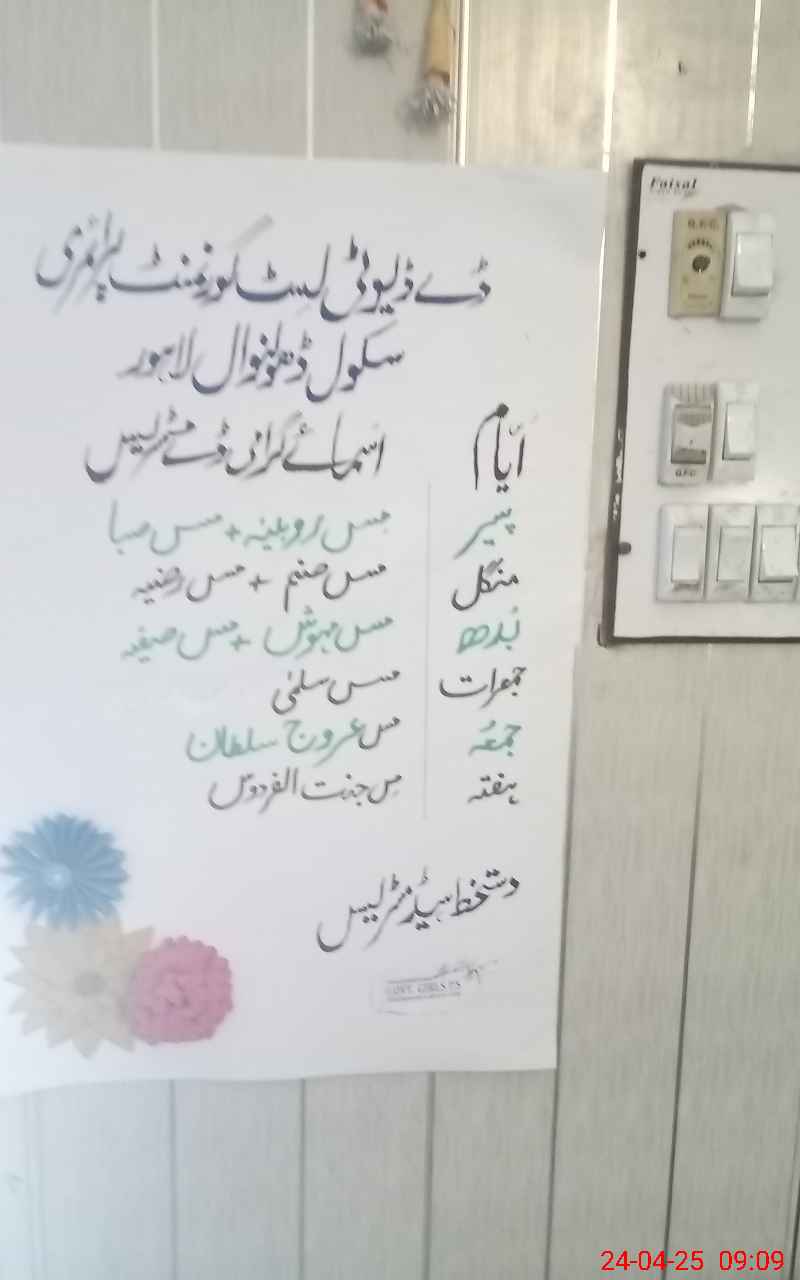 ڈے ڈیوٹی لسٹ گورنمنٹ پرائمری
سکول ڈھولنوال لاہور
ایام اسمائے گرامی ڈے مسٹریس
پیر مس روبینہ + مس صبا
منگل مس صنم + مس رضیہ
بُدھ مس مہوش + مس صفیہ
جمعرات مس سلمٰی
جمعہ مس عروج سلطان
ہفتہ مس جنت الفردوس
دستخط ہیڈ مسٹریس
GOVT. GIRLS P.S
Faisal
G.F.C.
G.F.C
24-04-25 09:09